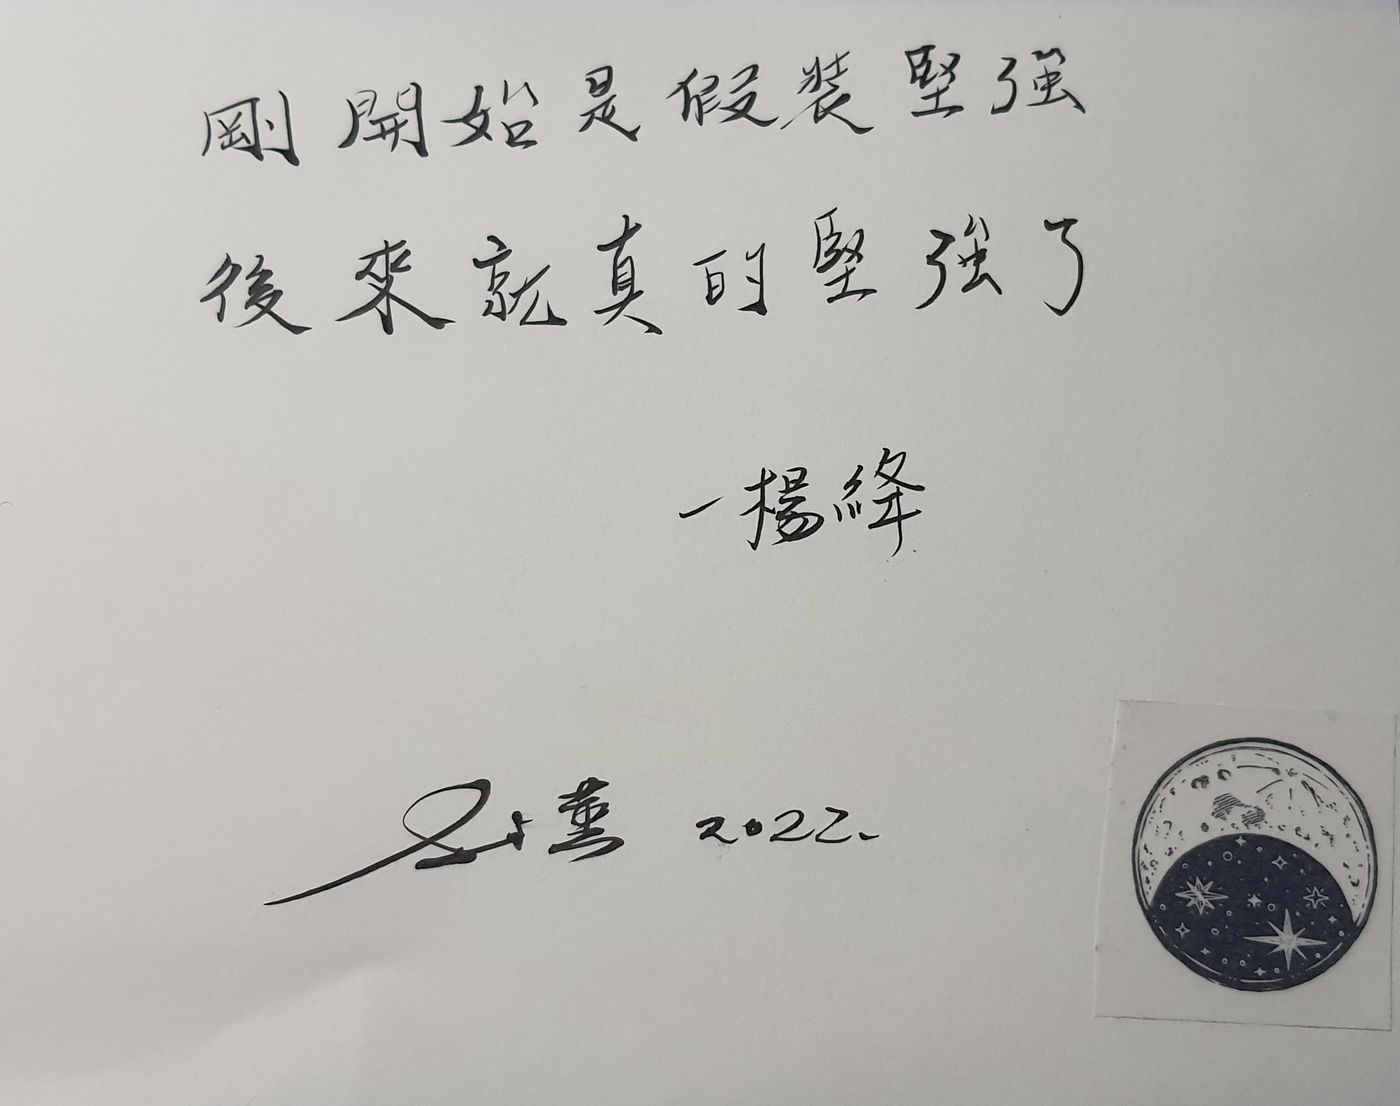 剛開始是假裝堅強
後來就真的堅強了
一楊絳
2022.